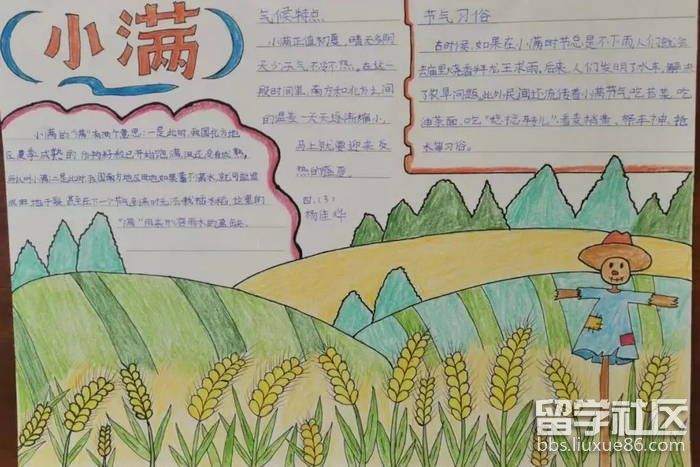 小满
小满的"满"有两个意思:一是此时,我国北方地
区夏季成熟的作物籽粒已开始饱满,但还没有成熟,
所以叫小满;二是此时我国南方地区田地如果蓄不满水,就可能造
成田地干裂,甚至在下一个节气芒种时无法栽插水稻,这里的
"满"用来形容雨水的盈缺。
气候特点
小满正值初夏,晴天多阴
天少,天气不冷不热。在这一
段时间里,南方和北方之间
的温差一天天逐渐缩小,
马上就要迎来炎
热的盛夏。
四.(3)
杨佳烨
节气习俗
古时候,如果在小满时节总是不下雨人们就会
去庙里烧香拜龙王求雨,后来,人们发明了水车,解决
了农旱问题,此外民间还流传着小满节气,吃苦菜,吃
油茶面,吃"捻捻转儿",看麦梢黄,祭车神,抢
水等习俗。
留学社区
bbs.liuxue86.com